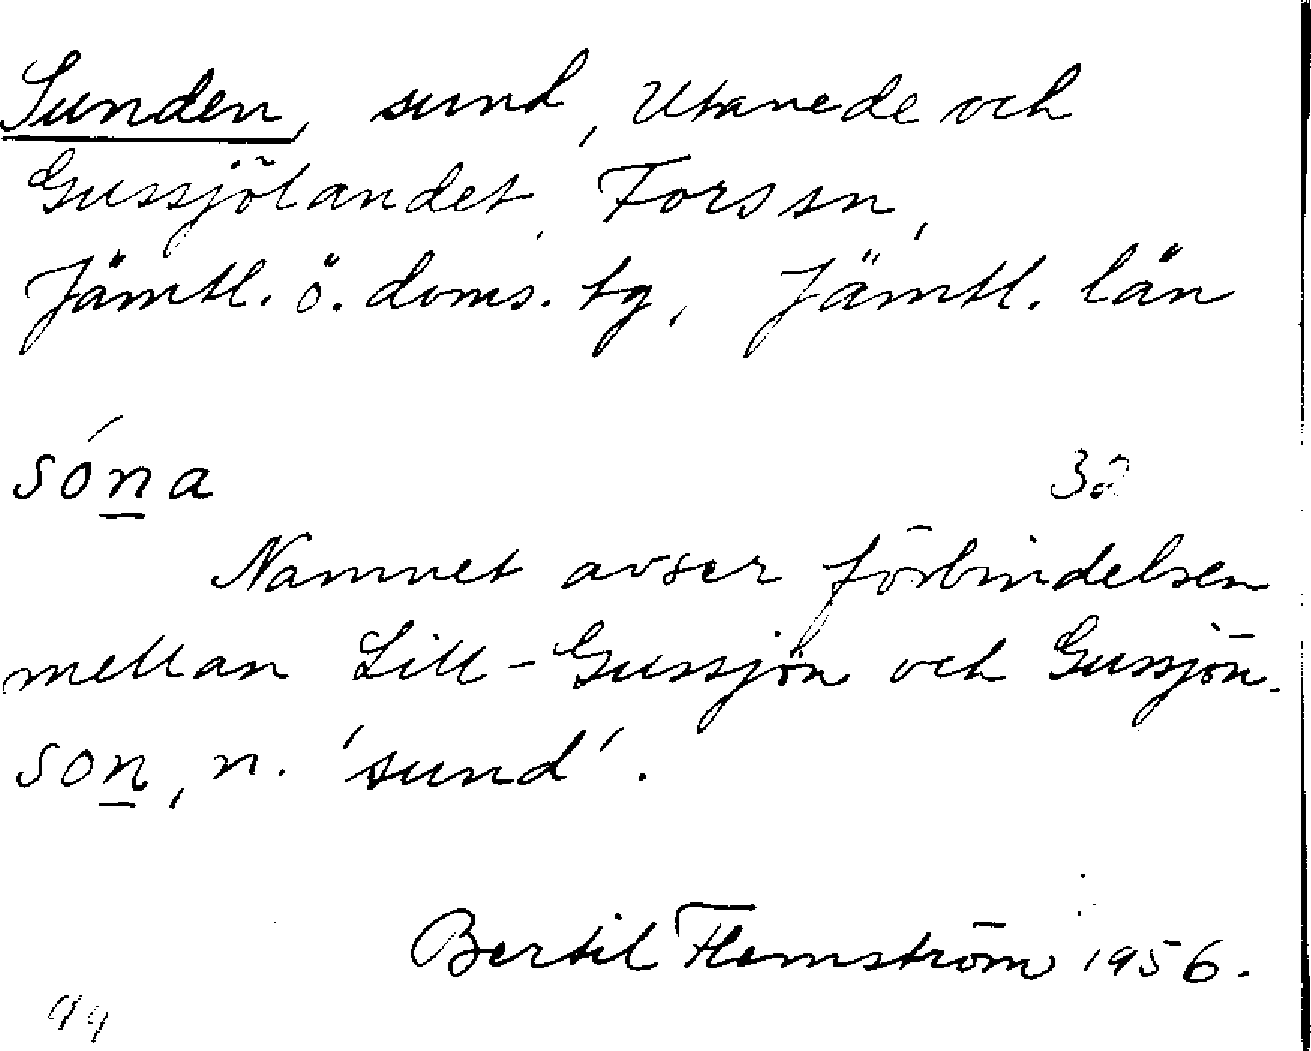 Sunden, sund, Utanede och
Gussjölandet, Fors sn,
Jämtl. ö. doms. tg, Jämtl. län
sóna
Namnet avser förbindelsen
mellan Lill-Gussjön och Gussjön.
son, n. 'sund'.
Bertil Flemström 1956.